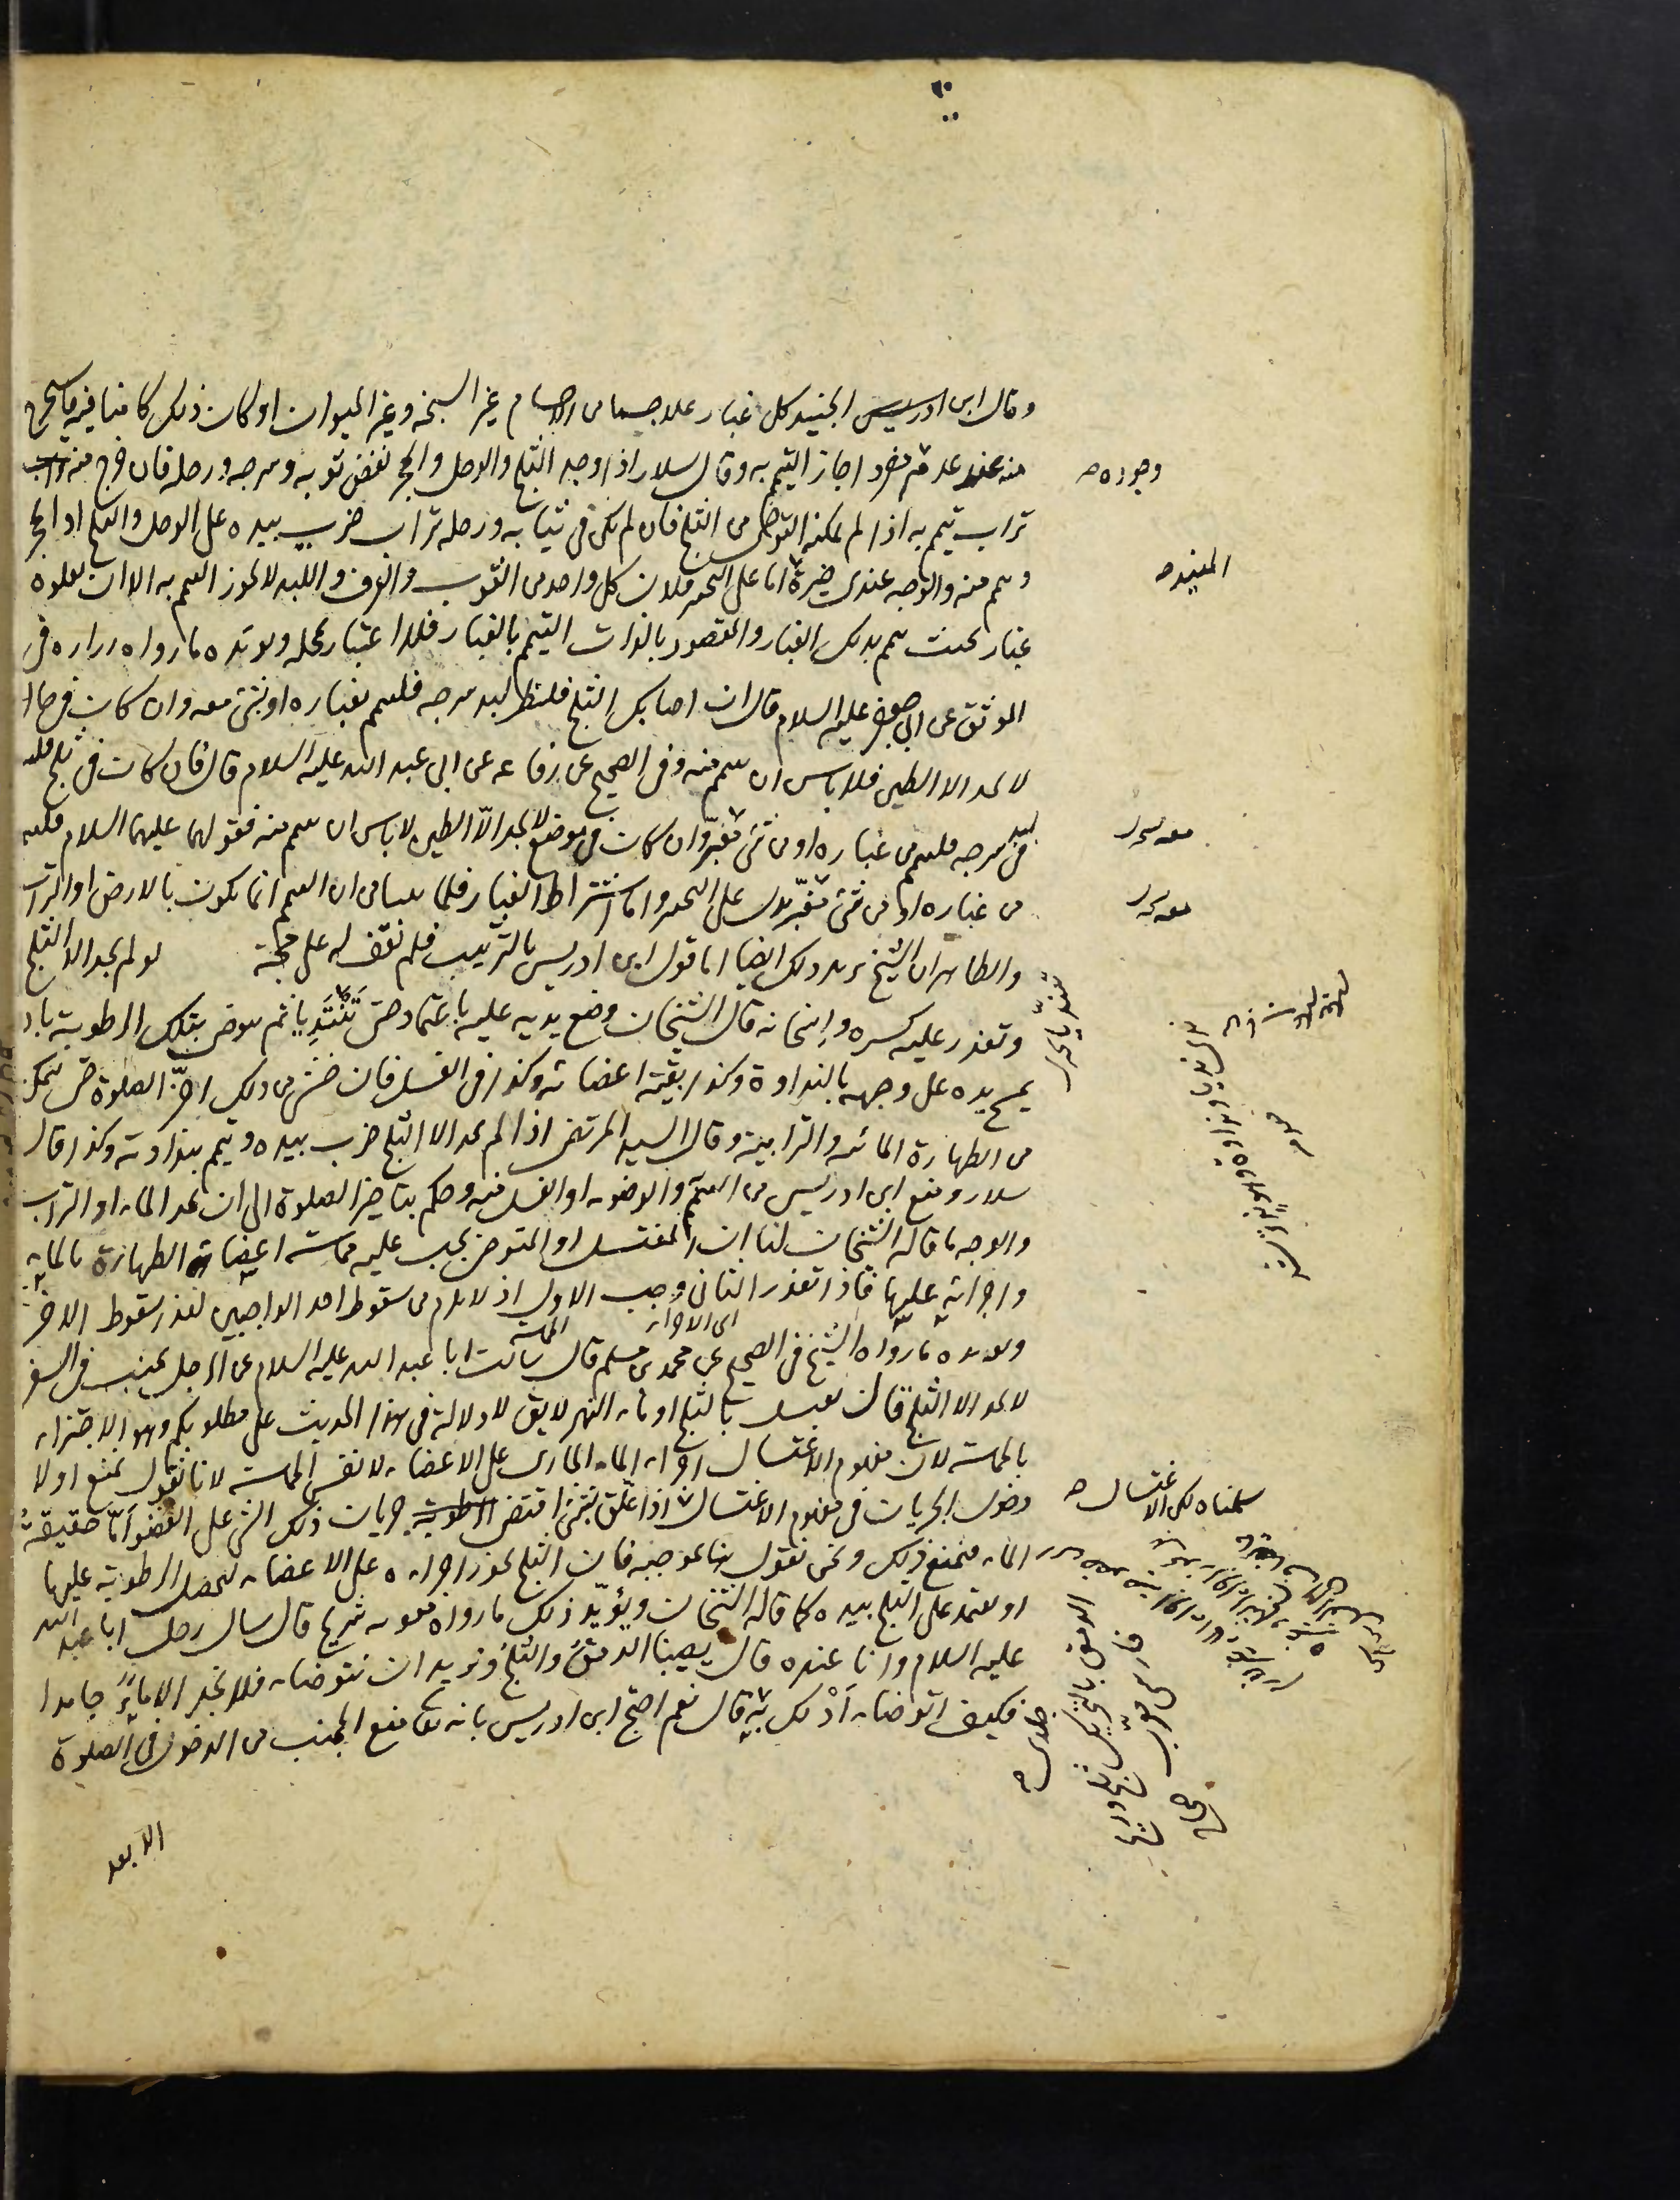 وقال ابن ادريس الجنيد كل غبار علا جسما من الاجسام غير السبخة وغير الحيوان او كان ذلك كامنا فيه فاستخرج
منه عند عدم وجوده مفرد اجاز التيمم به وقال سلار اذا وجد الثلج والوحل والحجر نفض ثوبه وسرجه ورحله فان خرج منه تراب
تراب تيمم به اذا لم يمكنه التوضى من الثلج فان لم يكن فى ثيابه ورحله تراب ضرب بيده على الوحل والثلج او الحجر
وتيمم منه والوجه عندى خيرة المفيد اما على التخيير فلان كل واحد من الثوب والعرف واللبد لا يجوز التيمم به الا ان يعلوه
غبار بحيث تيمم بذلك الغبار والمقصود بالذات التيمم بالغبار فلا اعتبار بمحله ويؤيده ما رواه زرارة فى
الموثق عن ابى جعفر عليه السلام قال ان اصابك الثلج فلينظر لبد سرجه فليتيمم بغباره او بشئ معه وان كان فى حال
لا يجد الا الطين فلا باس ان يتيمم منه وفى الصحيح عن رفاعة عن ابى عبد الله عليه السلام قال فان كان فى ثلج فلينظر
لبد سرجه فليتيمم من غباره او من شئ مغبر وان كان فى موضع لا يجد الا الطين لا باس ان يتيمم منه فقولهما عليهما السلام فليتيمم
من غباره او من شئ مغبر يدل على التخيير واما اشتراط الغبار فلما بينا من ان التيمم انما يكون بالارض او التراب
والظاهر ان الشيخ يريد ذلك ايضا اما قول ابن ادريس بالترتيب فلم نقف له على حجة لو لم يجد الا الثلج
وتعذر عليه كسره واسخانه قال الشيخان وضع يديه عليه باعتماد حتى تتنديا ثم يتوضى بتلك الرطوبة بان
يمسح يده على وجهه بالنداوة وكذا بقية اعضائه وكذا فى الغسل فان خشى من ذلك اخر الصلوة حتى يتمكن
من الطهارة المائية والترابية وقال السيد المرتضى اذا لم يجد الا الثلج ضرب بيده وتيمم بنداوته وكذا قال
سلار ومنع ابن ادريس من التيمم والوضوء او الغسل منه وحكم بتاخير الصلوة الى ان يجد الماء او التراب
والوجه ما قاله الشيخان لنا ان المغتسل او المتوضى يجب عليه مماسة اعضاء الطهارة بالماء
واجرائه عليها فاذا تعذر الثانى وجب الاول اذ لا يلزم من سقوط احد الواجبين لعذر سقوط الاخر
اى الاجراء
المماسة
ويؤيده ما رواه الشيخ فى الصحيح عن محمد بن مسلم قال سالت ابا عبد الله عليه السلام عن الرجل يجنب فى السفر
لا يجد الا الثلج قال يغتسل بالثلج او ماء النهر لا يق لا دلالة فى هذا الحديث على مطلوبكم وهو الاجتزاء
بالمماسة لان مفهوم الاغتسال اجراء الماء الجارى على الاعضاء لا نفس المماسة لانا نقول نمنع اولا
دخول الجريان فى مفهوم الاغتسال سلمناه لكن الاغتسال اذا علق بشئ اقتضى الرطوبة جريان ذلك الشئ على العضو اما حقيقة
الماء فنمنع ذلك ونحن نقول هنا بموجبه فان الثلج يجوز اجراءه على الاعضاء لتحصل الرطوبة عليها
او يعتمد على الثلج بيده كما قاله الشيخان ويؤيد ذلك ما رواه معوية شريح قال سال رجل ابا عبد الله
عليه السلام وانا عنده قال يصيبنا الدمق والثلج ونريد ان نتوضاء فلا نجد الا ماءً جامدا
فكيف اتوضاء ادلك به جلدى قال نعم احتج ابن ادريس بانه تعالى منع الجنب من الدخول فى الصلوة
الا بعد
وجوده
المفيد
معه
معه
سلمناه لكن الاغتسال
جلدى
الدمق بالتحريك ثلج وريح
فارسى معرب
صحاح